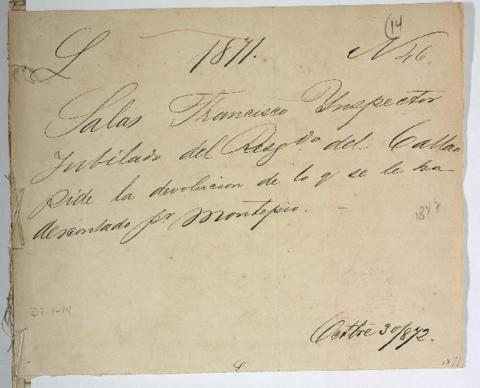 14
L 1871. N 46
Salas Francisco Ynspector
Jubilado del Resgdo del Callao
pide la devolucion de lo q se le ha
descontado pr. Montepio.
1873
D7-1-14
Octbre 30/872.
1871